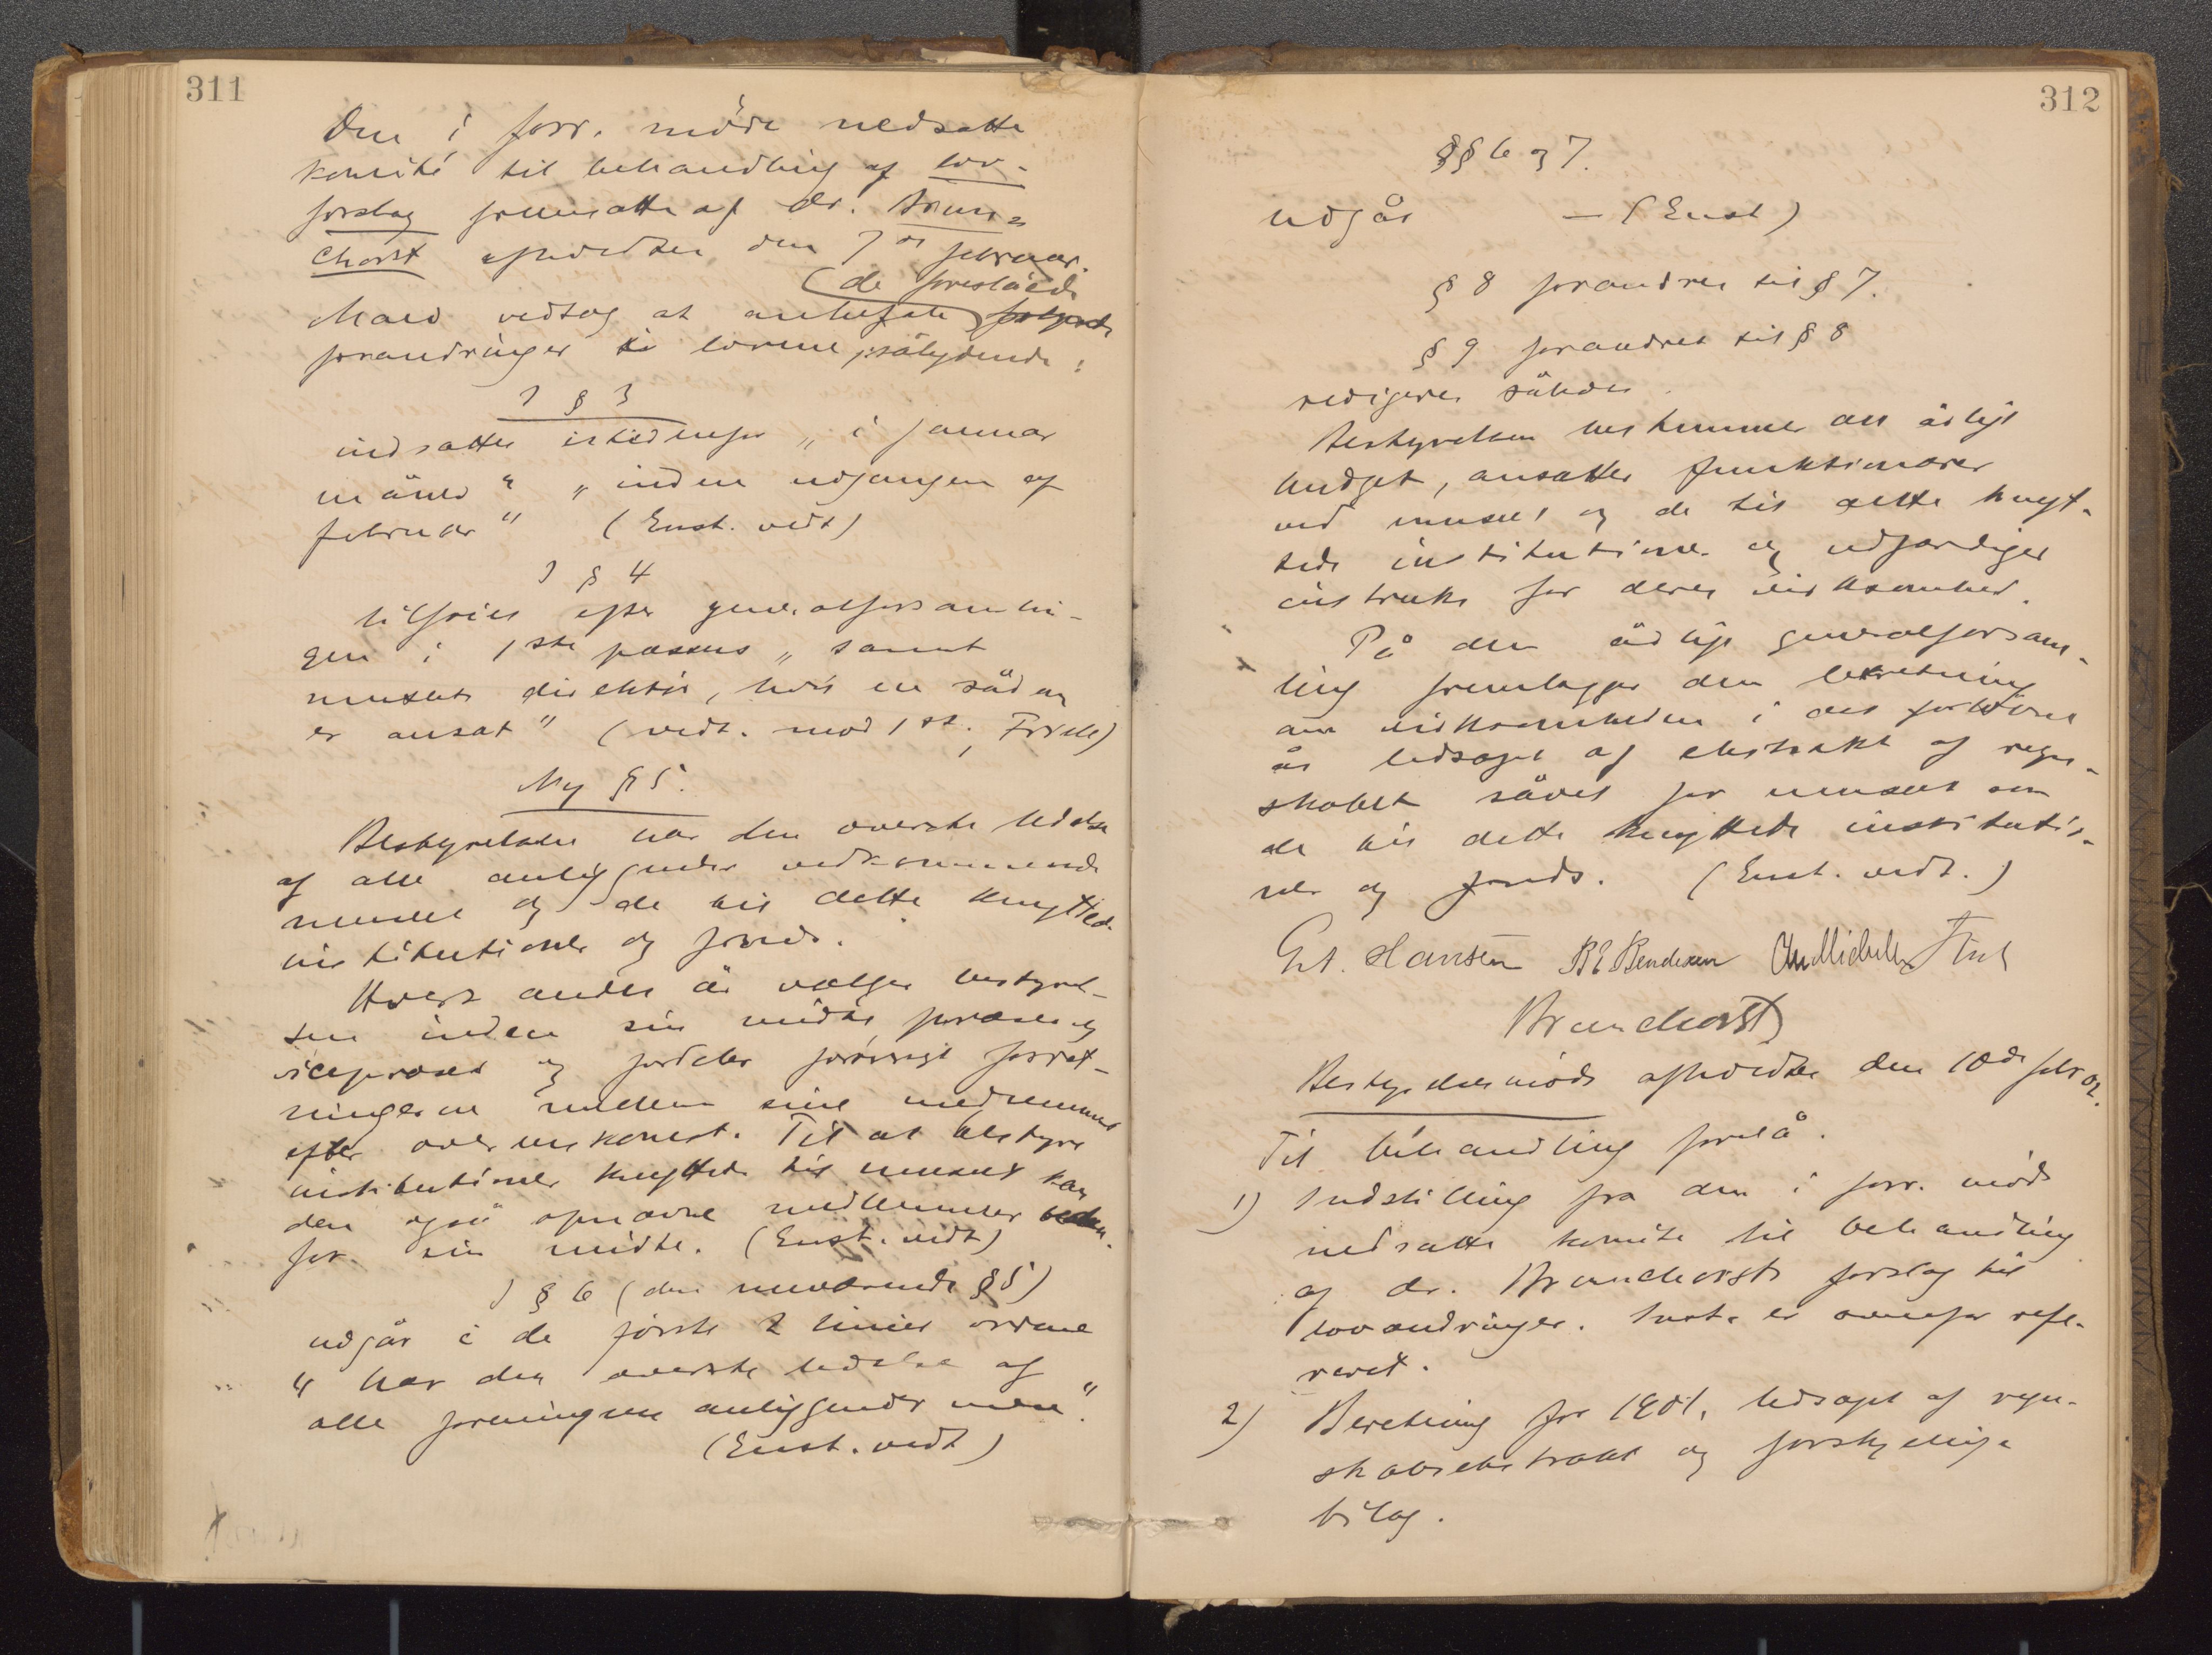 311
Den i forr. møde nedsatte
komité til behandling af lov-
forslag fremsatte af dr. Brun-
chorst afholdtes den 7de februar.
(de foreslåede
Man vedtog at anbefale følgende
forandringer i lovene, sålydende:
I § 3
indsættes istedenfor „i januar
måned“ „inden udgangen af
februar“ (Enst. vedt)
I § 4
tilføies efter generalforsamlin-
gen i 1ste passus „samt
musæets direktør, hvis en sådan
er ansat“ (vedt. mod 1 st., Friele)
Ny § 5.
Bestyrelsen har den øverste ledelse
af alle anliggender vedkommende
musæet og de til dette knyttede
institutioner og fonds.
Hvert andet år vælger bestyrel-
sen inden sin midte præses og
vicepræses og fordeler forøvrigt forret-
ningerne mellem sine medlemmer
efter overenskomst. Til at bestyre
institutioner knyttede til musæet kan
den også opnævne medlemmer uden-
for sin midte. (Enst. vedt)
I § 6 (den nuværende § 5)
udgår i de første 2 linier ordene
„har den øverste ledelse af
alle foreningens anliggender men“.
(Enst. vedt)
312
§§ 6 og 7.
udgår — (Enst)
§ 8 forandres til § 7.
§ 9 forandres til § 8
redigeres således.
Bestyrelsen bestemmer det årlige
budget, ansætter funktionærer
ved musæet og de til dette knyt-
tede institutioner og udfærdiger
instruks for deres virksomhed.
På den årlige generalforsam-
ling fremlægger den beretning
om virksomheden i det forløbne
år ledsaget af ekstrakt af regn-
skabet såvel for musæet som
de til dette knyttede institutio-
ner og fonds. (Enst. vedt.)
Gt. Hansen BE Bendixen
Brunchorst
Bestyrelsesmøde afholdtes den 10de febr 02.
Til behandling forelå.
1) Indstilling fra den i forr. møde
nedsatte komite til behandling
af dr. Brunchorsts forslag til
lovændringer. Indst. er ovenfor refe-
reret.
2) Beretning for 1901, ledsaget af regn-
skabsekstrakt og forskjellige
bilag.